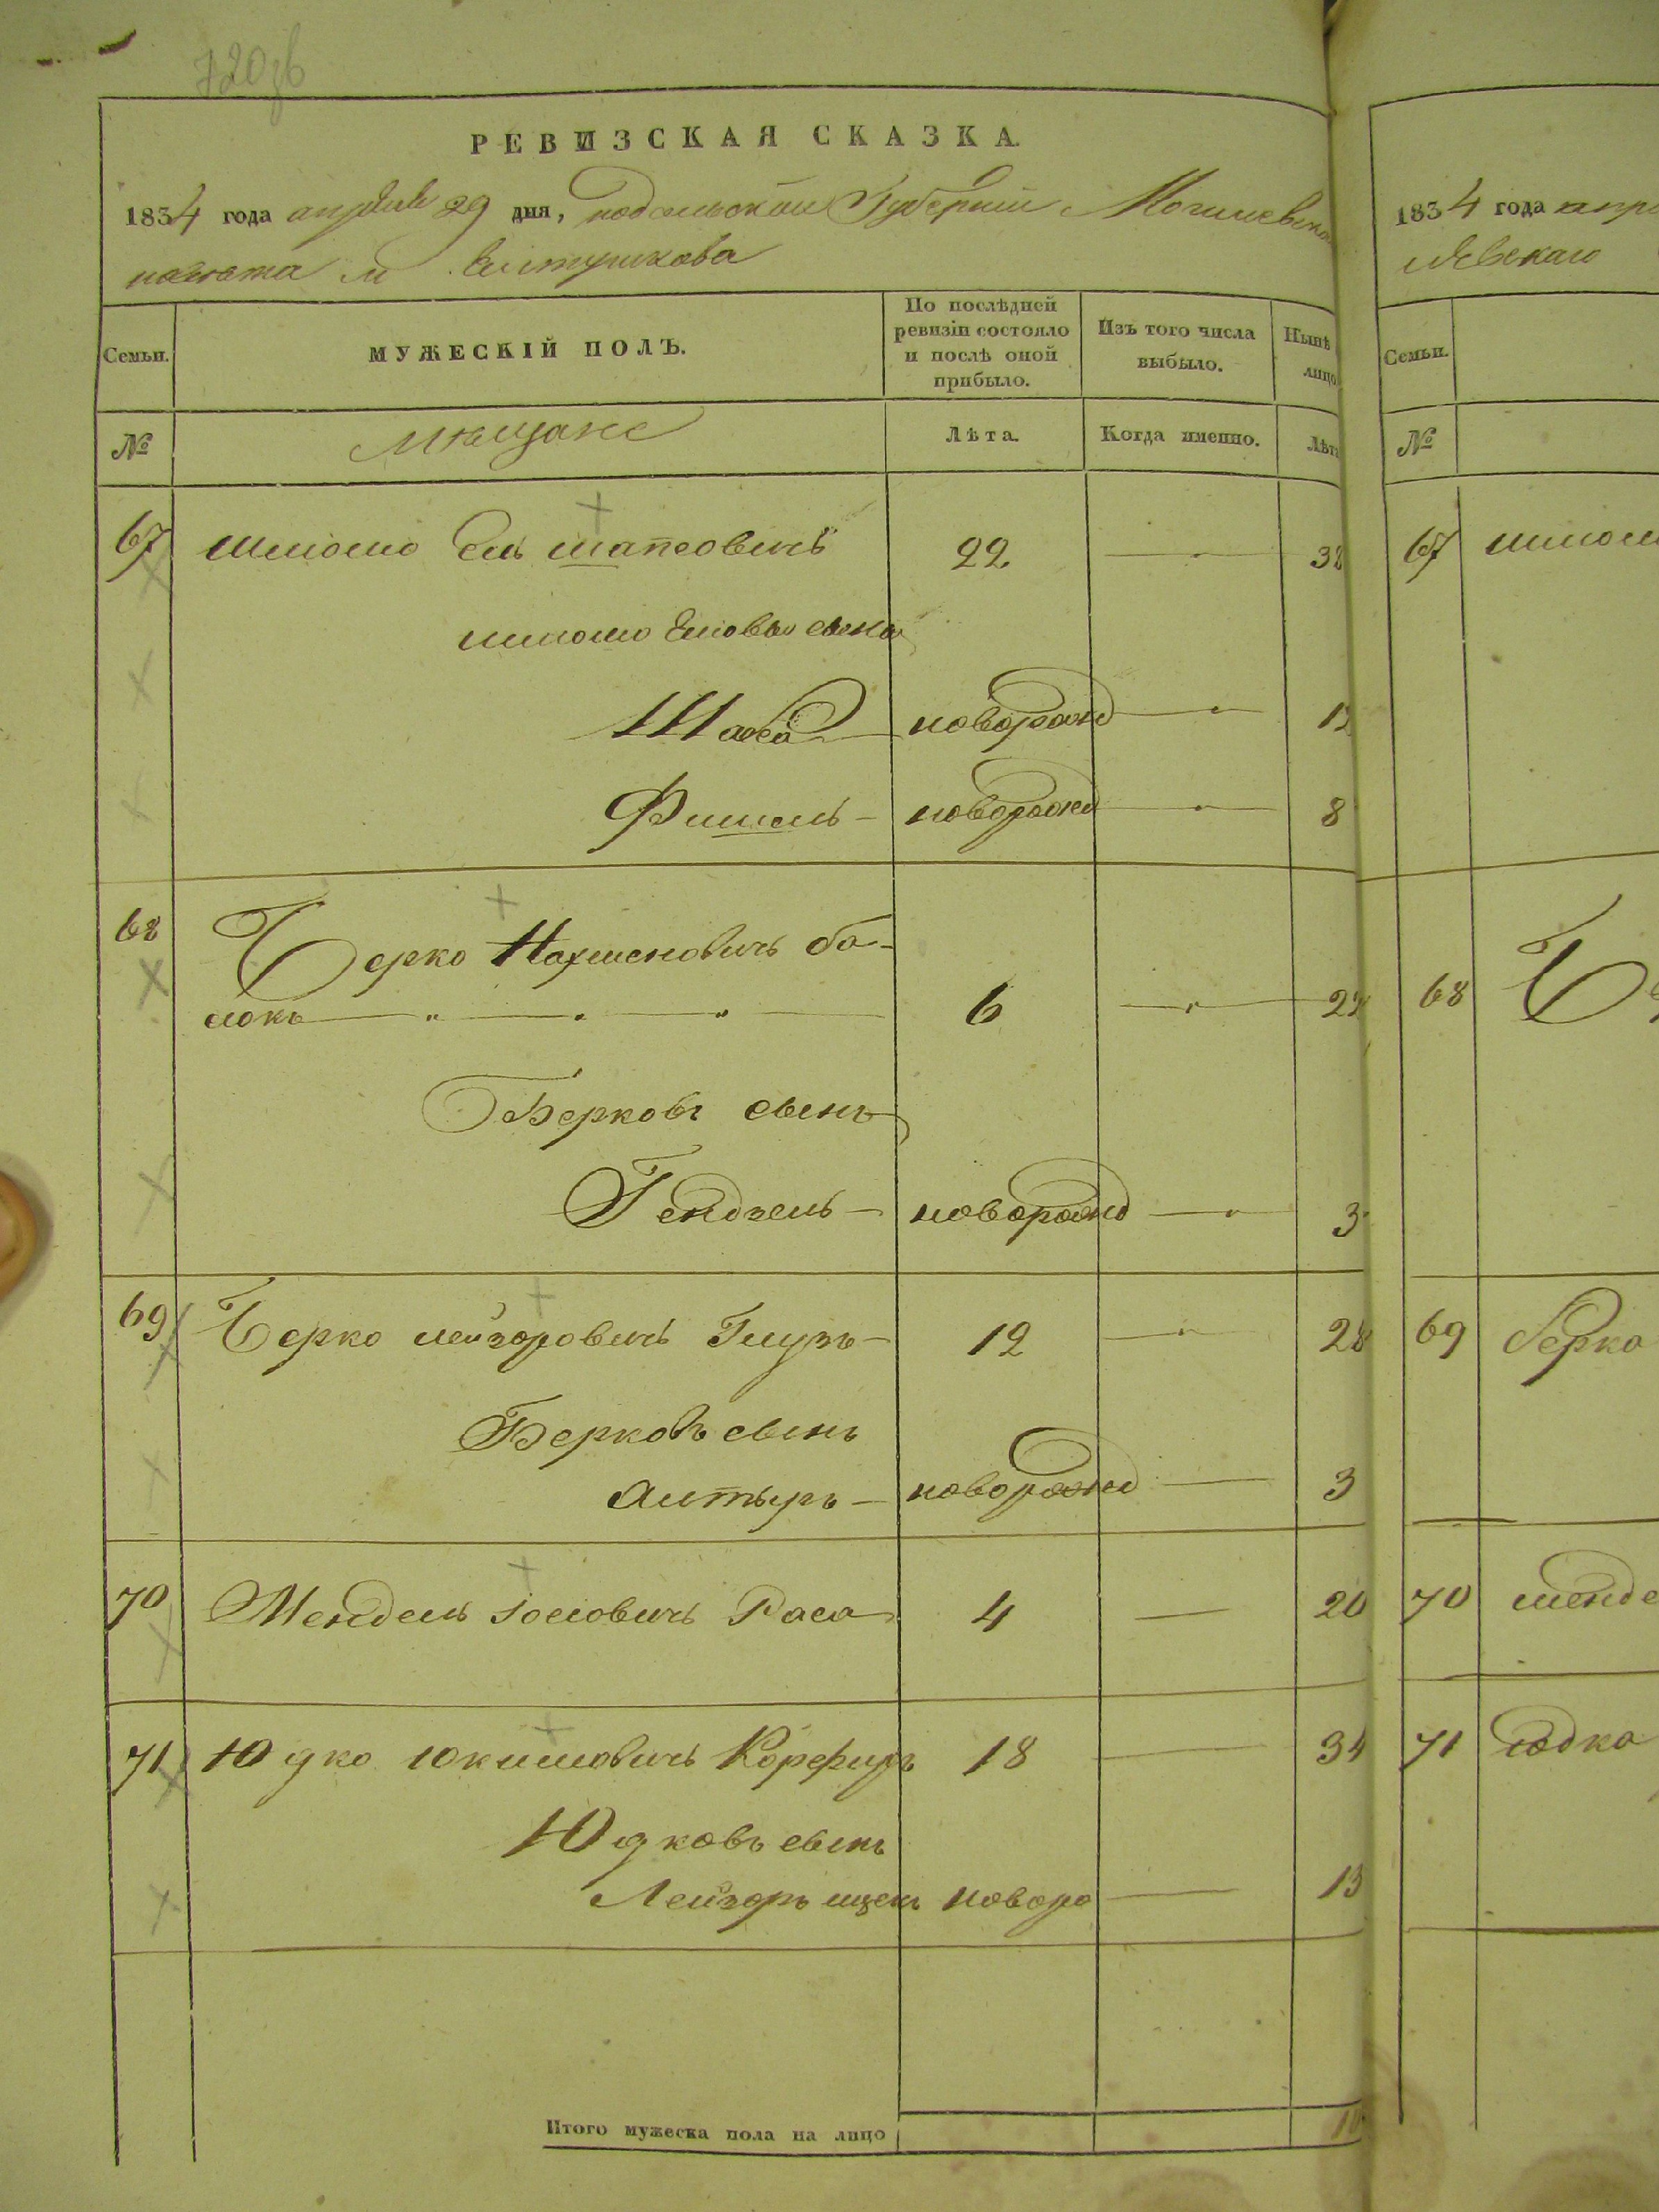 720зв
РЕВИЗСКАЯ СКАЗКА.
1834 года апреля 29 дня, подольской Губернии Могилевска
повѣта м Елтушкова
Семьи.
МУЖЕСКІЙ ПОЛЪ.
По послѣдней ревизіи состояло и послѣ оной прибыло.
Изъ того числа выбыло.
Нынѣ лицо
№
Мѣщане
Лѣта.
Когда именно.
Лѣт
67 шлiомо Ель шапсовичъ 22 — 32
шлiомо Еловы сына
Шабса новорожд — 12
Фишель — новорожд — 8
68 Берко Нахменовичъ ба-
локъ 6 — 22
Берковъ сынъ
Гендзель — новорожд — 3
69 Берко лейзоровичъ Глузъ — 12 — 28
Берковъ сынъ
Алтыръ — новорожд — 3
70 Мендель Iосіовичъ Раса 4 — 20
71 Юдко юкимовичъ Корефиръ 18 — 34
Юдковъ сынъ
Лейзоръ ицекъ новоро — 13
Итого мужеска пола на лицо 10
1834 года апре
левскаго
Семьи.
№
67 шлiом
68 Бе
69 берко
70 менде
71 юдко